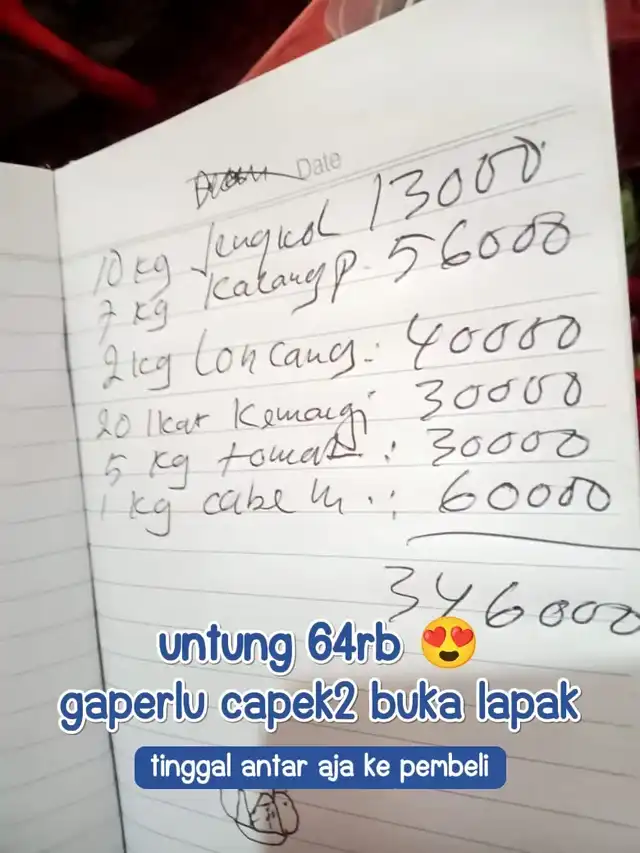 Date
10 kg Jengkol 130000
7 kg Kacang p. 56000
2 kg loncang : 40000
20 Ikat Kemangi 30000
5 kg tomat : 30000
1 kg cabe m. : 60000
346000
untung 64rb 😍
gaperlu capek2 buka lapak
tinggal antar aja ke pembeli